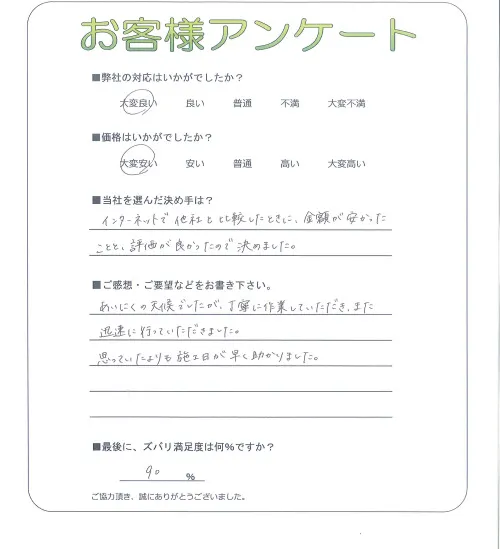 お客様アンケート
■弊社の対応はいかがでしたか？
大変良い 良い 普通 不満 大変不満
■価格はいかがでしたか？
大変安い 安い 普通 高い 大変高い
■当社を選んだ決め手は？
インターネットで他社と比較したときに、金額が安かった
ことと、評価が良かったので決めました。
■ご感想・ご要望などをお書き下さい。
あいにくの天候でしたが、丁寧に作業していただき、また
迅速に行っていただきました。
思っていたよりも施工日が早く助かりました。
■最後に、ズバリ満足度は何％ですか？
90 ％
ご協力頂き、誠にありがとうございました。